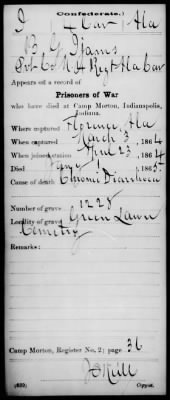 (Confederate.)
I 4 Cav Ala
B. G. Iams
Pvt Co M 4 Regt Ala Cav
Appears on a record of
Prisoners of War
who have died at Camp Morton, Indianapolis,
Indiana.
Where captured Florence, Ala
When captured March 3, 1864
When joined station April 23, 1864
Died Jany 1, 1865.
Cause of death Chronic Diarrhoea
Number of grave 1228
Locality of grave Green Lawn
Cemetry
Remarks:
Camp Morton, Register No. 2; page 36
(639)
Copyist.